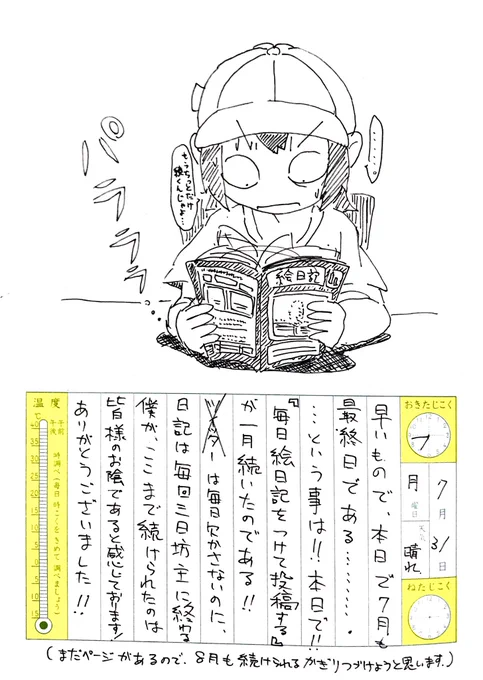 …‥
ちっちっとだけ
続くんじゃよ…
パラララ
絵日記
おきたじこく
7月31日
月曜日
天気 晴れ
ねたじこく
早いもので、本日で7月も
最終日である………。
…という事は!!本日で!!
『毎日絵日記をつけて投稿する』
が一月続いたのである!!
ツイッターは毎日欠かさないのに、
日記は毎回三日坊主に終わる
僕が、ここまで続けられたのは
皆様のお陰であると感じております!
ありがとうございました!!
温度
℃
午前
午後
時調べ(毎日時こくをきめて調べましょう)
40
35
30
25
20
15
10
5
0
5
10
15
(まだページがあるので、8月も続けられるかぎりつづけようと思います。)